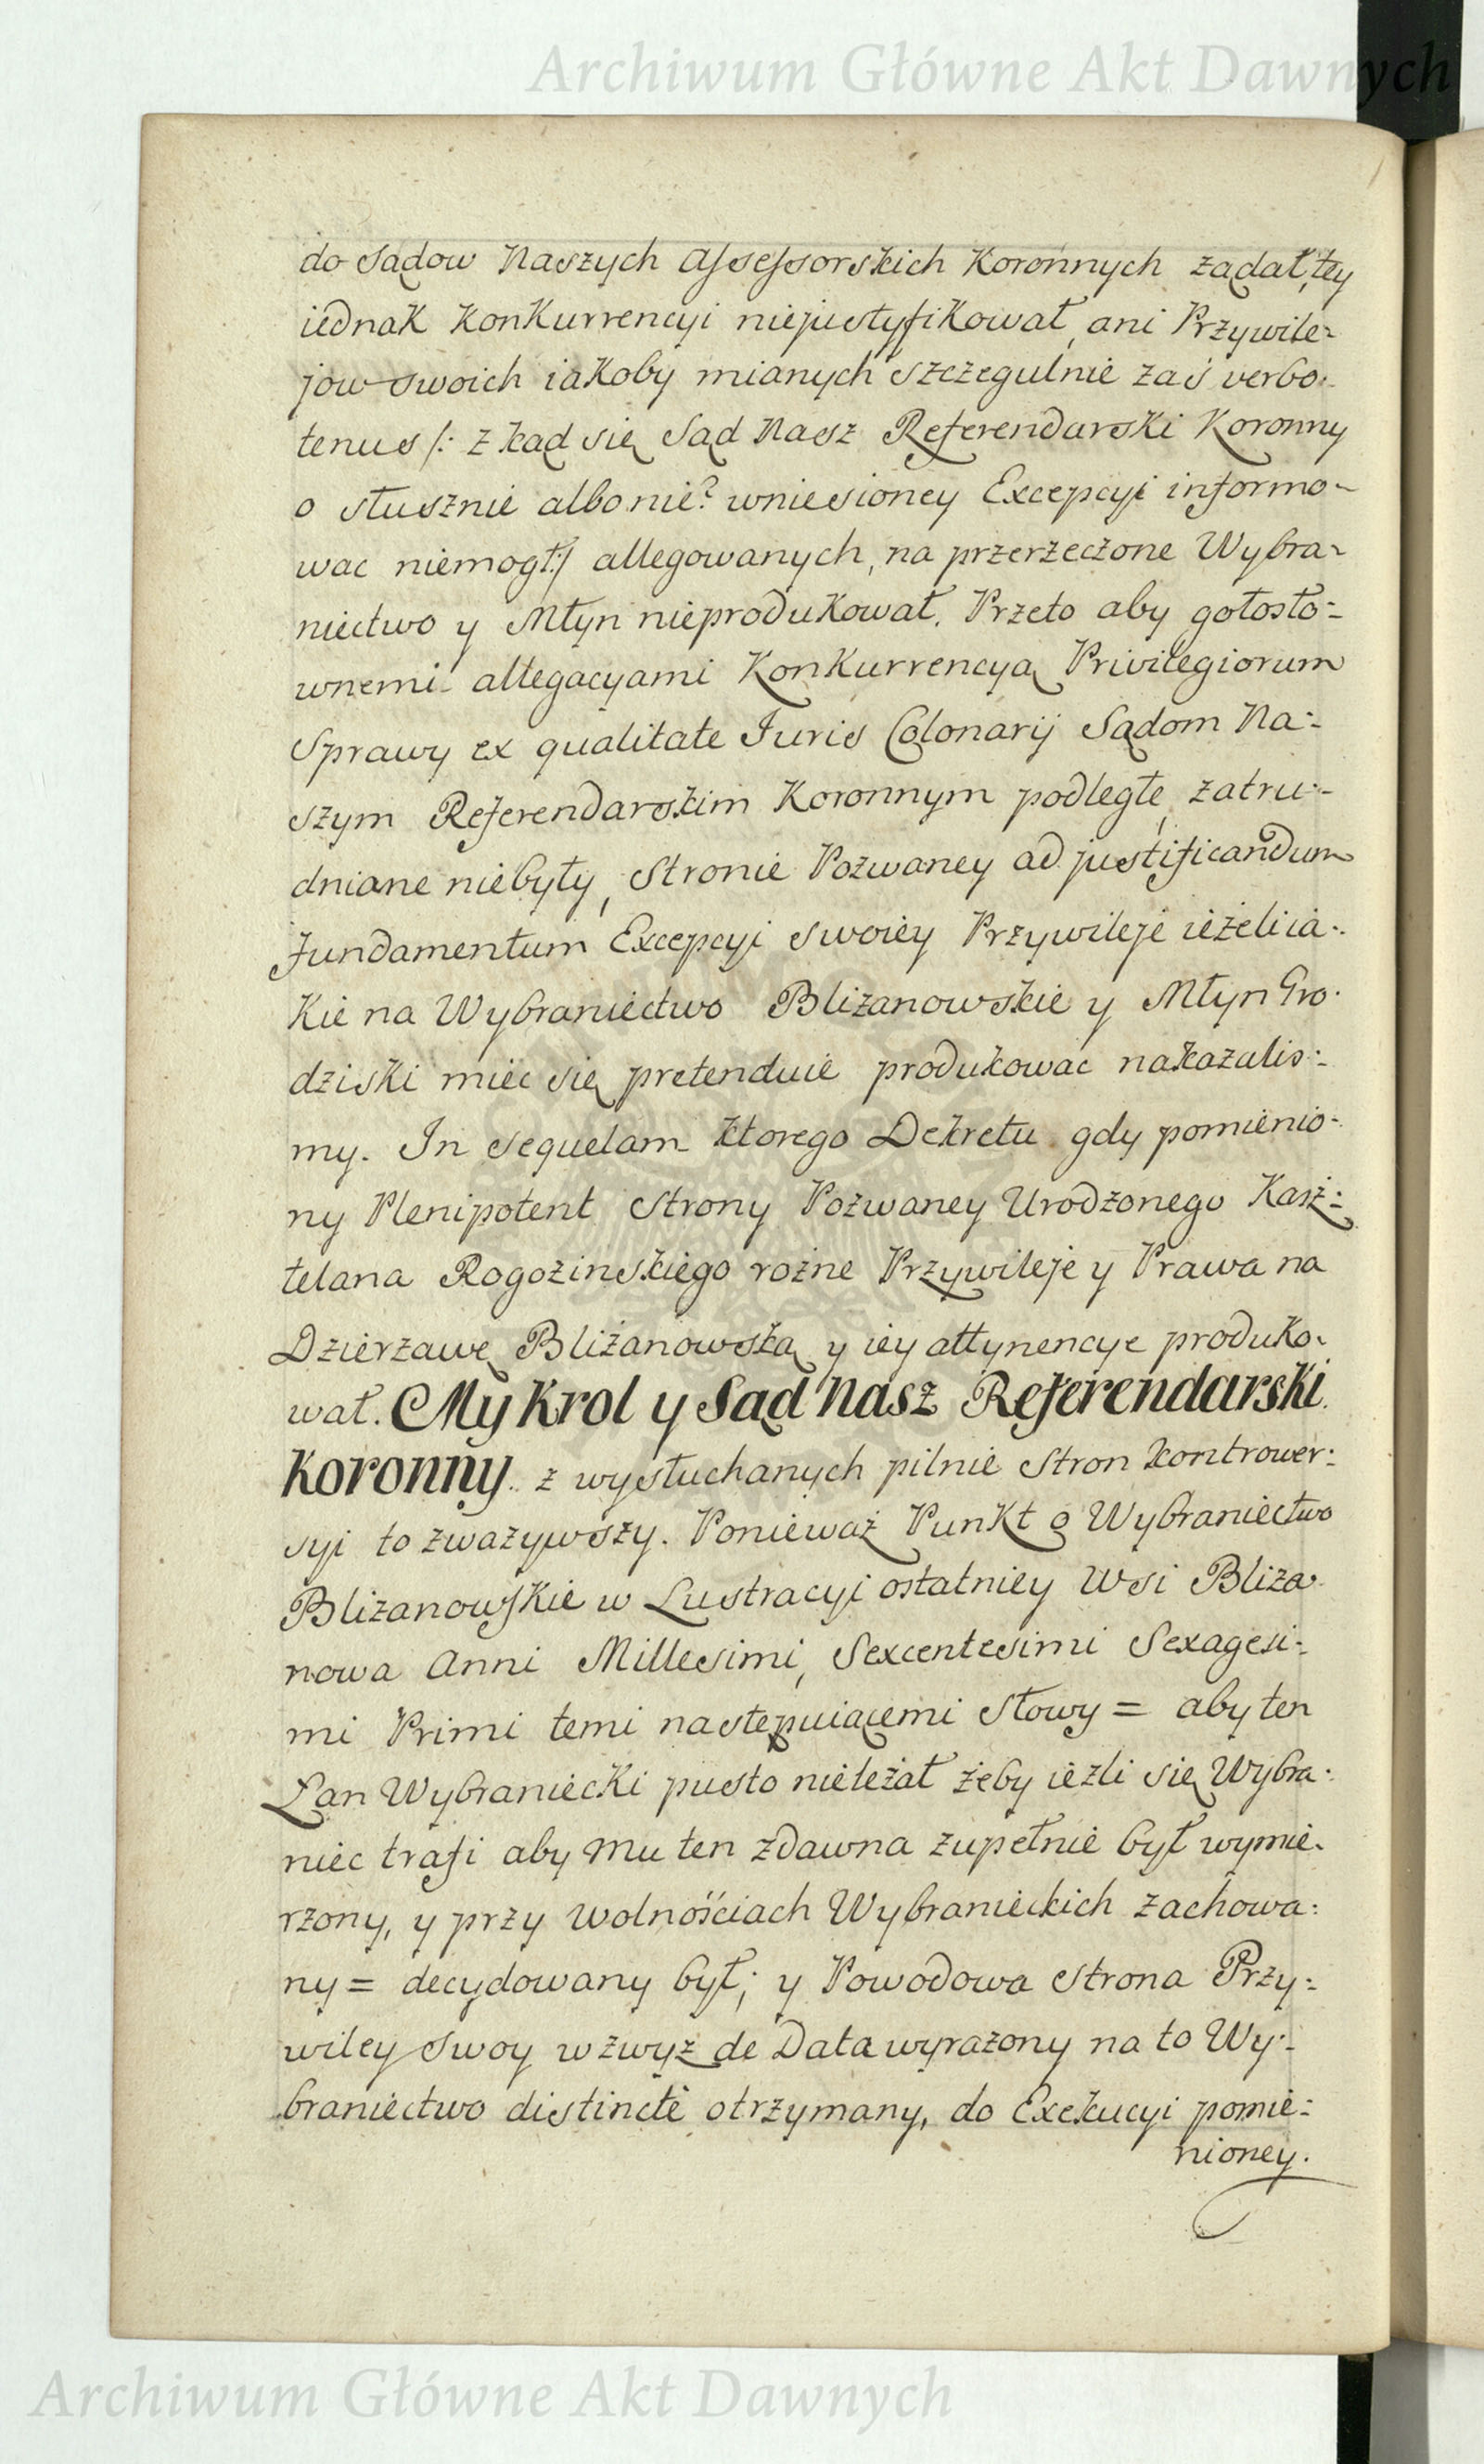 Archiwum Główne Akt Dawnych
do Sądow Naszych Assessorskich Koronnych ządał, tey
iednak Konkurrencyi niejustyfikował, ani Przywile-
jow swoich iakoby mianych szczegulnie zaś verbo-
tenus /: z kąd się Sąd Nasz Referendarski Koronny
o słusznie albo nie? wniesioney Excepcyi informo-
wac niemogł :/ allegowanych, na przerzeczone Wybra-
niectwo y Młyn nieprodukował. Przeto aby gołosło-
wnemi allegacyami Konkurrencyą Privilegiorum
Sprawy ex qualitate Iuris Colonarij Sądom Na-
szym Referendarskim Koronnym podległe, zatru-
dniane niebyły, Stronie Pozwaney ad justificandum
fundamentum Excepcyi swoiey Przywileje ieżeli ia-
kie na Wybraniectwo Bliżanowskie y Młyn Gro-
dziski miec się pretenduie produkowac nakazalis-
my. In sequelam ktorego Dekretu gdy pomienio-
ny Plenipotent Strony Pozwaney Urodzonego Kasz-
telana Rogozinskiego rożne Przywileje y Prawa na
Dzierzawę Bliżanowską y iey attynencye produko-
wał. My Krol y Sąd Nasz Referendarski
Koronny z wysłuchanych pilnie Stron kontrower-
syi to zważywszy. Ponieważ Punkt o Wybraniectwo
Bliżanowskie w Lustracyi ostatniey Wsi Bliża-
nowa Anni Millesimi, Sexcentesimi Sexagesi-
mi Primi temi następuiącemi słowy = aby ten
Łan Wybraniecki pusto nieleżał żeby ieżli się Wybra-
niec trafi aby mu ten zdawna zupełnie był wymie-
rzony, y przy wolnościach Wybranieckich zachowa-
ny = decydowany był; y Powodowa Strona Przy-
wiley swoy wzwyż de Data wyrażony na to Wy-
braniectwo distincte otrzymany, do Exekucyi pomie-
nioney.
Archiwum Główne Akt Dawnych